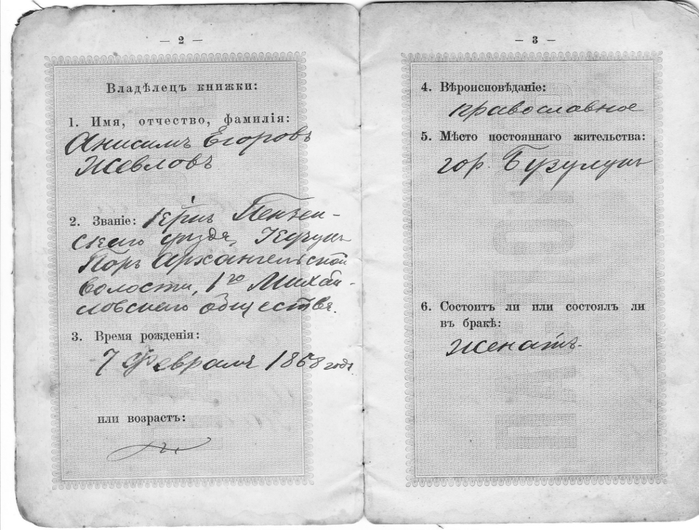 — 2 —
Владѣлецъ книжки:
1. Имя, отчество, фамилія:
Анисимъ Егоровъ
Жевловъ
2. Званіе: Пензен-
скаго уѣзда,
Архангельской
волости, 1го Михай-
ловскаго общества.
3. Время рожденія:
7 Февраля 1868 года
или возрастъ:
— 3 —
4. Вѣроисповѣданіе:
православное
5. Мѣсто постояннаго жительства:
гор. Бузулукъ
6. Состоитъ ли или состоялъ ли
въ бракѣ:
женатъ